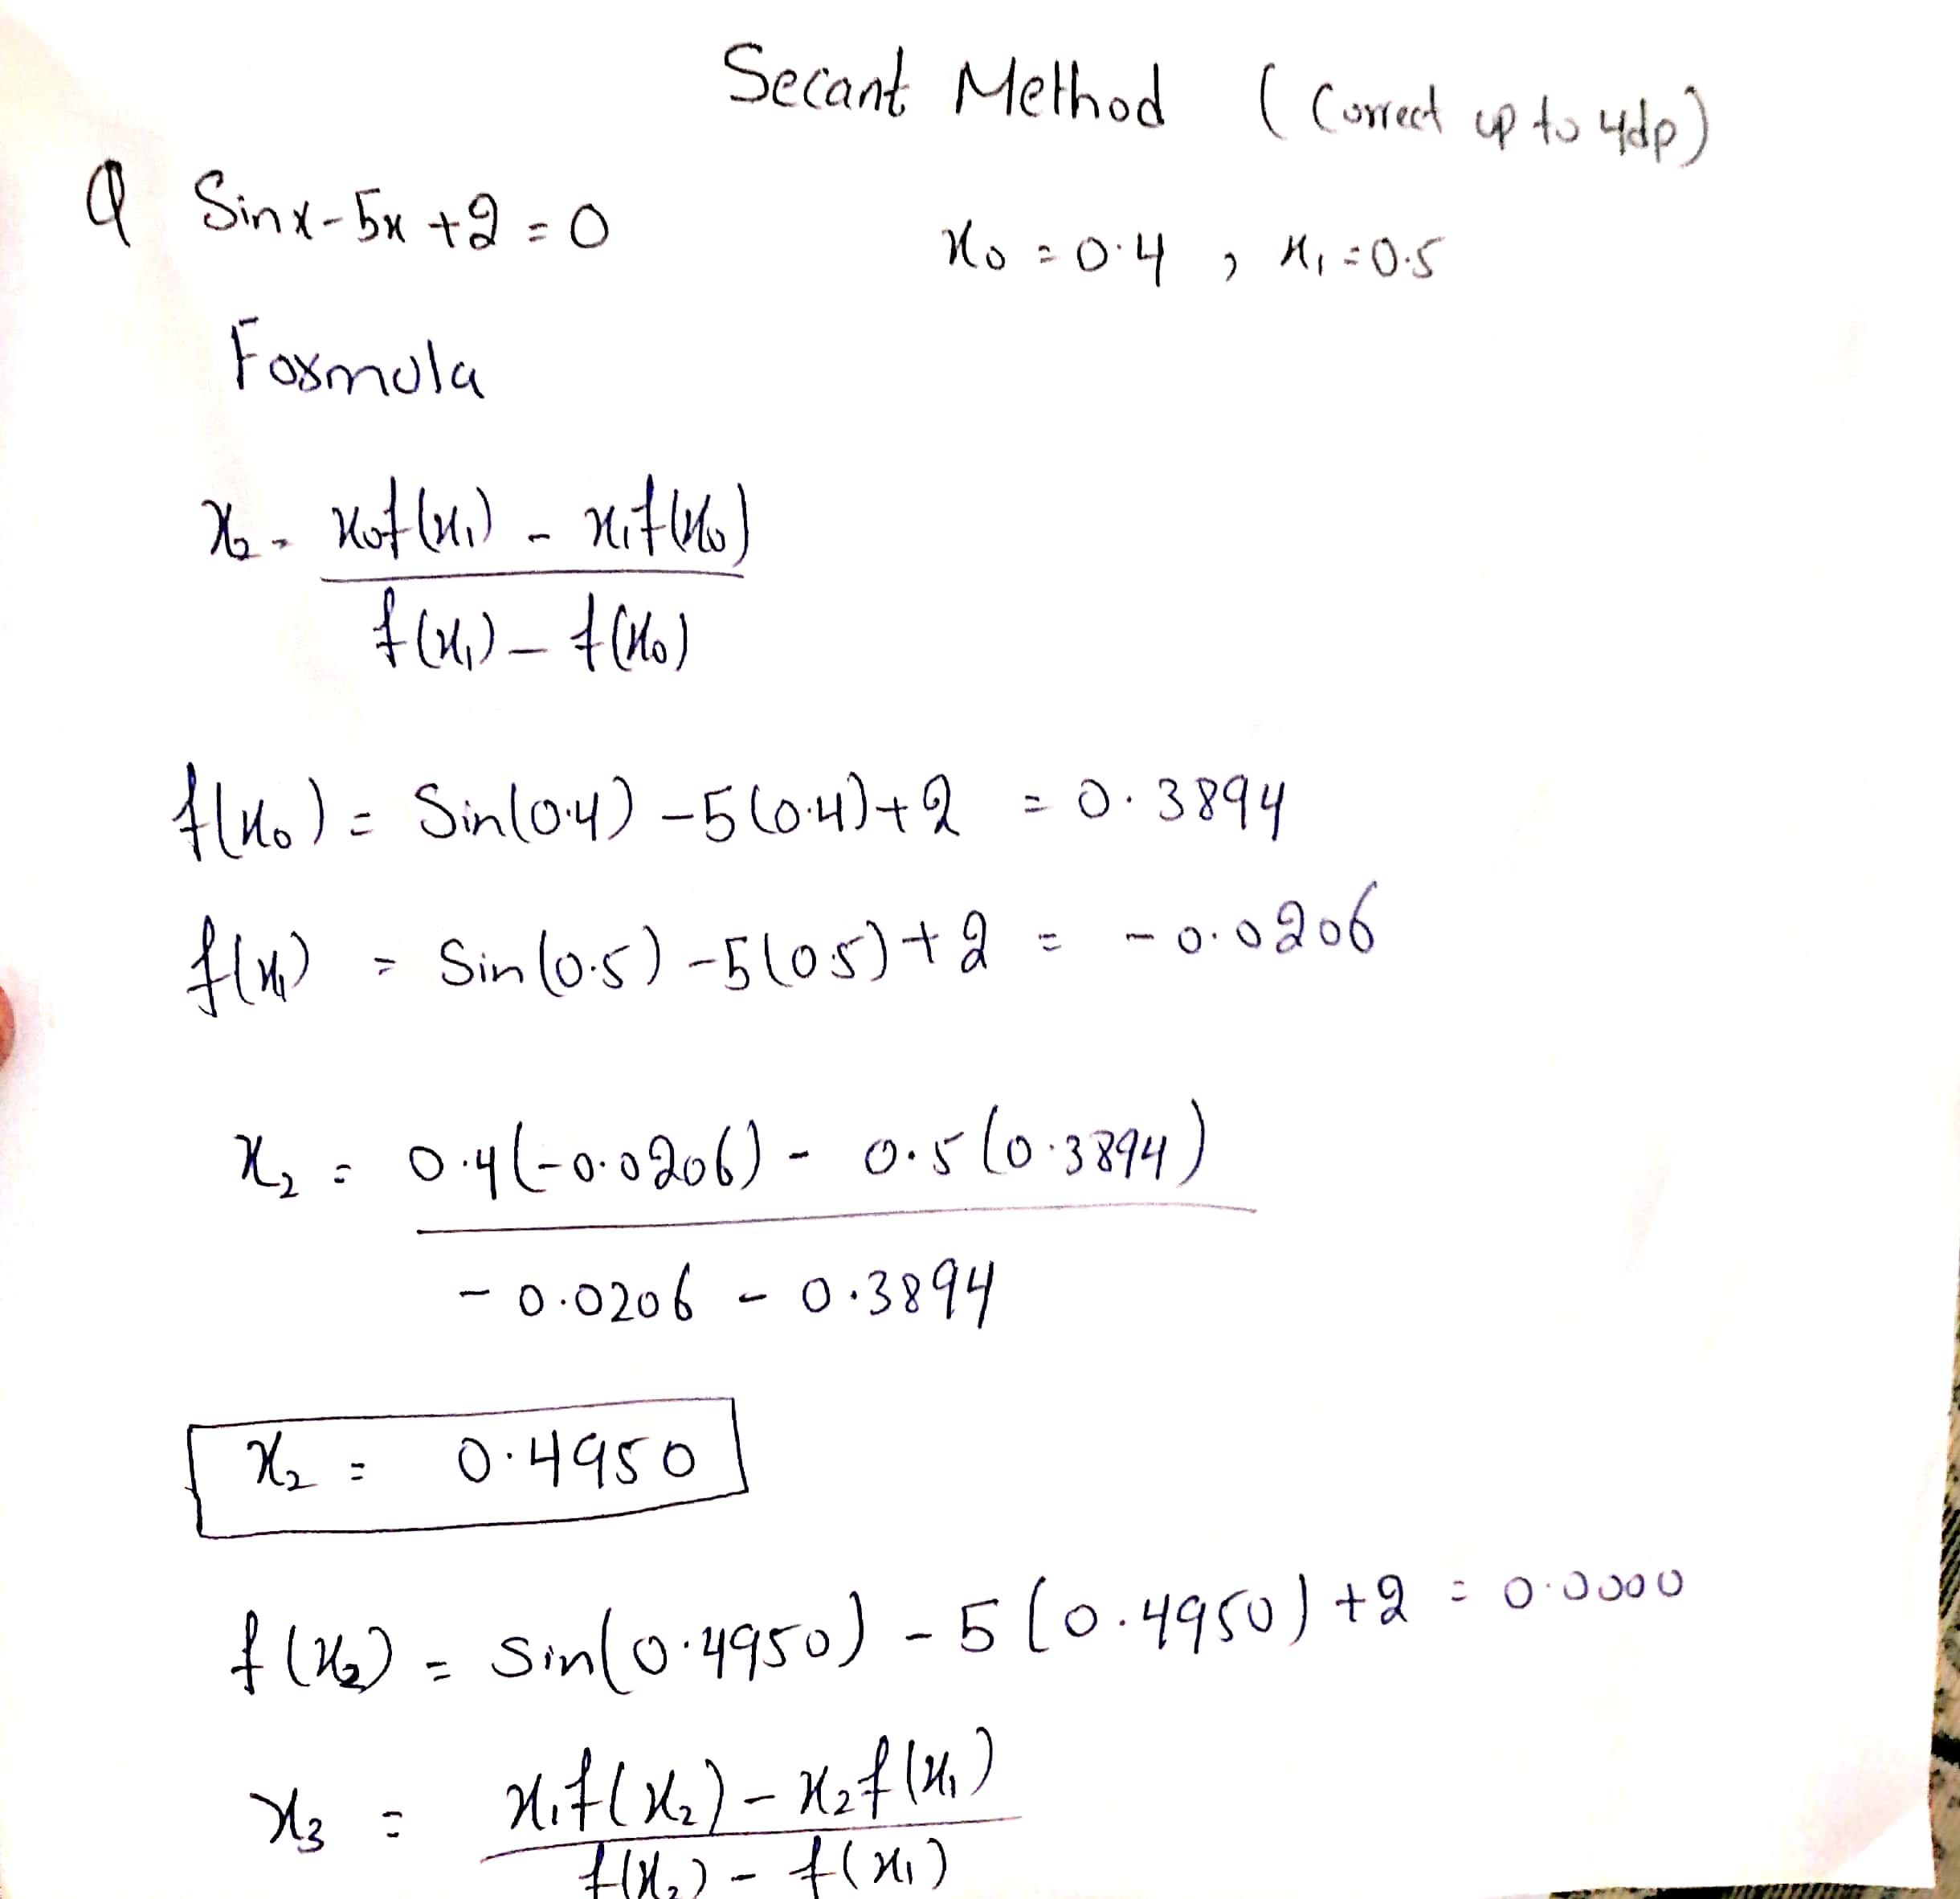 Secant Method (Correct up to 4dp)
Q Sinx-5x+2=0 x₀=0.4, x₁=0.5
Formula
x₂ = x₀f(x₁) - x₁f(x₀)
f(x₁) - f(x₀)
f(x₀) = Sin(0.4) -5(0.4)+2 = 0.3894
f(x₁) = Sin(0.5) -5(0.5)+2 = -0.0206
x₂ = 0.4(-0.0206) - 0.5(0.3894)
-0.0206 - 0.3894
x₂ = 0.4950
f(x₂) = Sin(0.4950) - 5(0.4950)+2 = 0.0000
x₃ = x₁f(x₂) - x₂f(x₁)
f(x₂) - f(x₁)